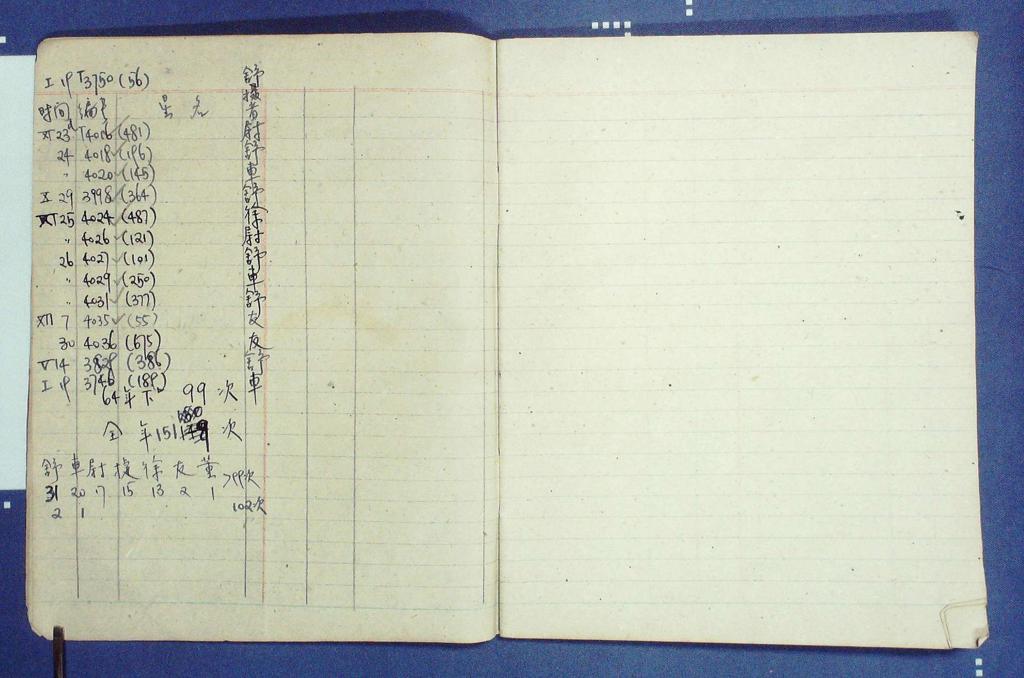 I 19 T3750 (56) 舒
时间 编号 星名
XI 23 T4016 (481) 尉
24 4018 (196) 舒
" 4020 (145) 車
X 29 3998 (364) 舒
XI 25 4024 (487) 徐
" 4026 (121) 尉
26 4027 (101) 舒
" 4029 (250) 車
" 4031 (377) 舒
XII 7 4035 (55) 友
30 4036 (675) 友
V 14 3828 (386) 舒
I 19 3746 (189) 車
64年下 99 次
全 年 151 次
舒 車 尉 援 徐 友 董 >99次
31 20 17 15 13 2 1
2 1 102次